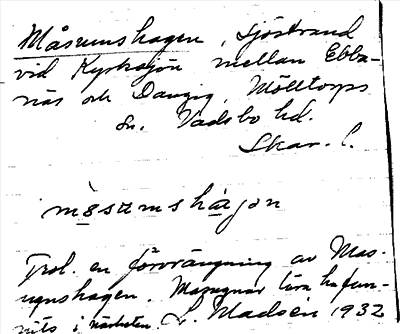 Måsumshagen, Sjöstrand
vid Kyrksjön mellan Ebba-
näs och Danzig, Mölltorps
sn. Vadsbo hd.
Skar. l.
måsumshagən
Trol. en förvrängning av Mas-
ugnshagen. Masugnar lära ha fun-
nits i närheten. L. Madsén 1932